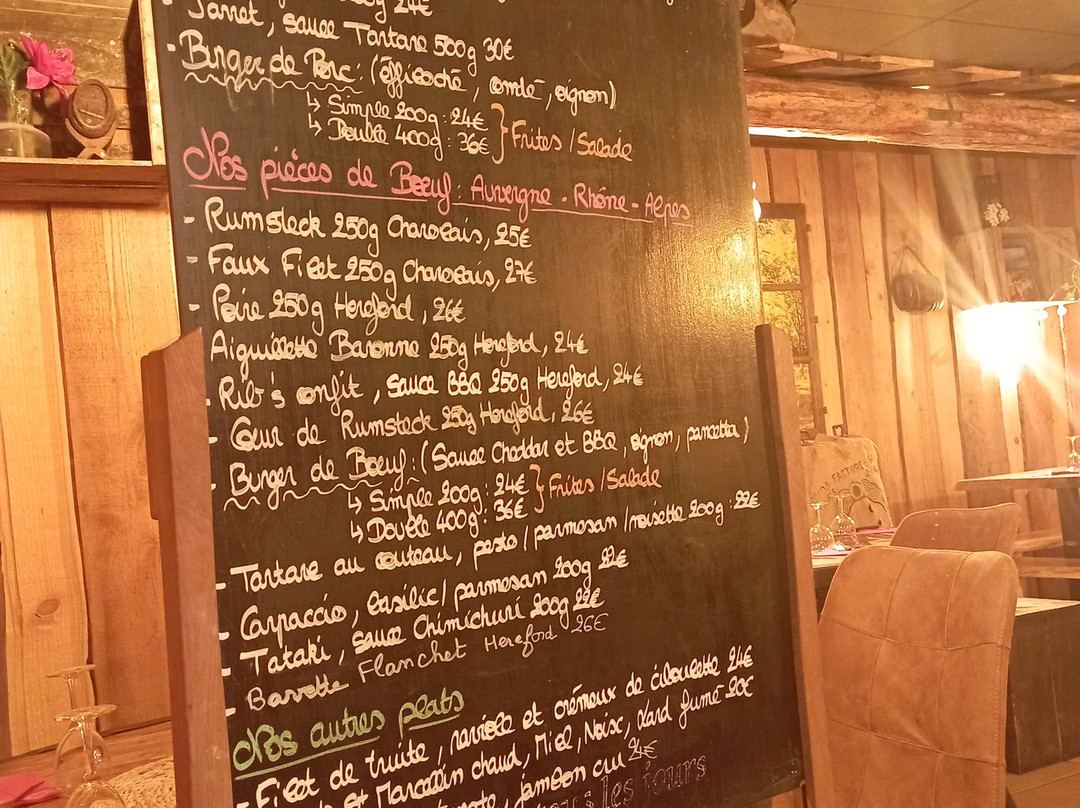 24€
Jarret, sauce Tartare 500g 30€
- Burger de Porc : (éffiloché, comté, oignon)
↳ Simple 200g : 24€
↳ Double 400g : 36€ } Frites / Salade
Nos pièces de Bœuf : Auvergne - Rhône - Alpes
- Rumsteck 250g Charolais, 25€
- Faux Filet 250g Charolais, 27€
- Poire 250g Hereford, 26€
Aiguillette Baronne 250g Hereford, 24€
- Rib's confit, sauce BBQ 250g Hereford, 24€
- Cœur de Rumsteck 250g Hereford, 26€
- Burger de Bœuf : (Sauce Cheddar et BBQ, oignon, pancetta)
↳ Simple 200g : 24€
↳ Double 400g : 36€ } Frites / Salade
- Tartare au couteau, pesto / parmesan / noisette 200g : 22€
- Carpaccio, basilic / parmesan 200g 22€
- Tataki, sauce Chimichuri 200g 22€
- Bavette Flanchet Hereford 26€
Nos autres plats
- Filet de truite, raviole et crémeux de ciboulette 24€
St Marcellin chaud, Miel, Noix, Lard fumé 20€
jambon cru 24€
les jours